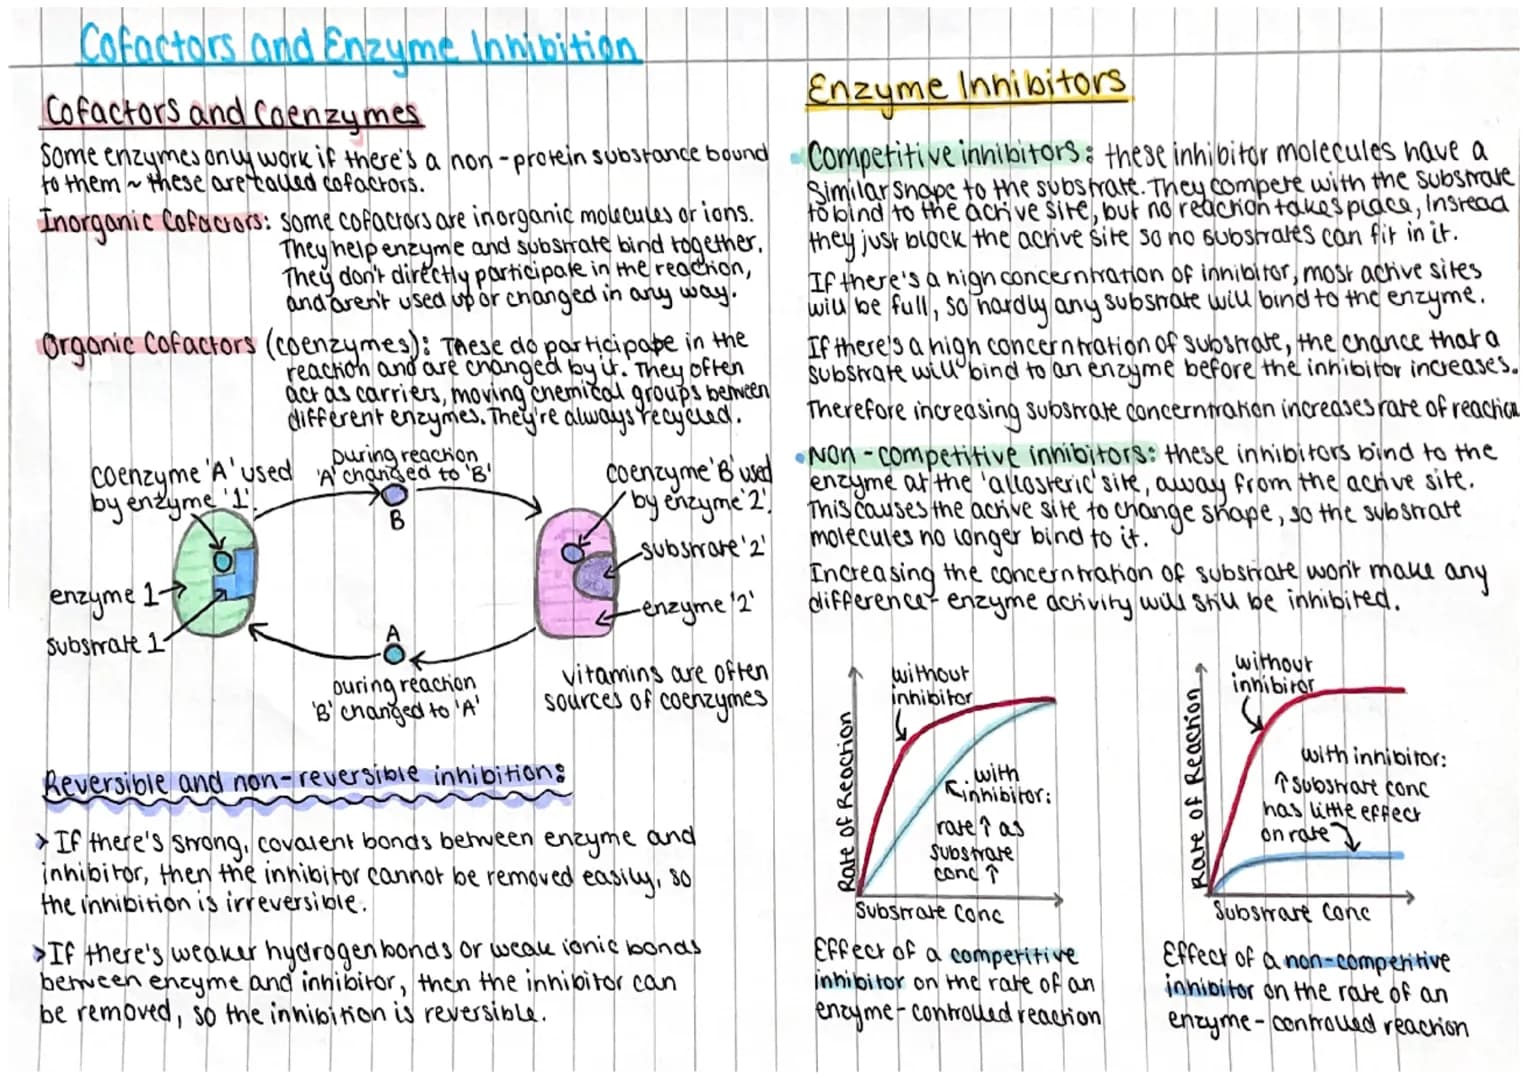 Cofactors and Enzyme Inhibition
Cofactors and Coenzymes
Some enzymes only work if there's a non-protein substance bound
to them ~ these are called cofactors.
Inorganic Cofactors: Some cofactors are inorganic molecules or ions.
They help enzyme and substrate bind together.
They don't directly participate in the reaction,
and aren't used up or changed in any way.
Organic Cofactors (coenzymes): These do participate in the
reaction and are changed by it. They often
act as carriers, moving chemical groups between
different enzymes. They're always recycled.
coenzyme 'A' used
by enzyme '1'.
During reaction
'A' changed to 'B'
B
coenzyme 'B' used
by enzyme '2'.
substrate '2'
enzyme '2'
enzyme 1
substrate 1
A
During reaction
'B' changed to 'A'
vitamins are often
sources of coenzymes
Reversible and non-reversible inhibition:
> If there's strong, covalent bonds between enzyme and
inhibitor, then the inhibitor cannot be removed easily, so
the inhibition is irreversible.
> If there's weaker hydrogen bonds or weak ionic bonds
between enzyme and inhibitor, then the inhibitor can
be removed, so the inhibition is reversible.
Enzyme Inhibitors
• Competitive inhibitors: these inhibitor molecules have a
similar shape to the substrate. They compete with the substrate
to bind to the active site, but no reaction takes place, instead
they just block the active site so no substrates can fit in it.
If there's a high concerntration of inhibitor, most active sites
will be full, so hardly any substrate will bind to the enzyme.
If there's a high concerntration of substrate, the chance that a
substrate will bind to an enzyme before the inhibitor increases.
Therefore increasing substrate concerntration increases rate of reaction
• Non-competitive inhibitors: these inhibitors bind to the
enzyme at the 'allosteric' site, away from the active site.
This causes the active site to change shape, so the substrate
molecules no longer bind to it.
Increasing the concerntration of substrate won't make any
difference - enzyme activity will still be inhibited.
Rate of Reaction
without
inhibitor
with
inhibitor:
rate ↑ as
substrate
conc ↑
Substrate Conc
Effect of a competitive
inhibitor on the rate of an
enzyme-controlled reaction
Rate of Reaction
without
inhibitor
with inhibitor:
↑ substrate conc
has little effect
on rate
Substrate Conc
Effect of a non-competitive
inhibitor on the rate of an
enzyme-controlled reaction